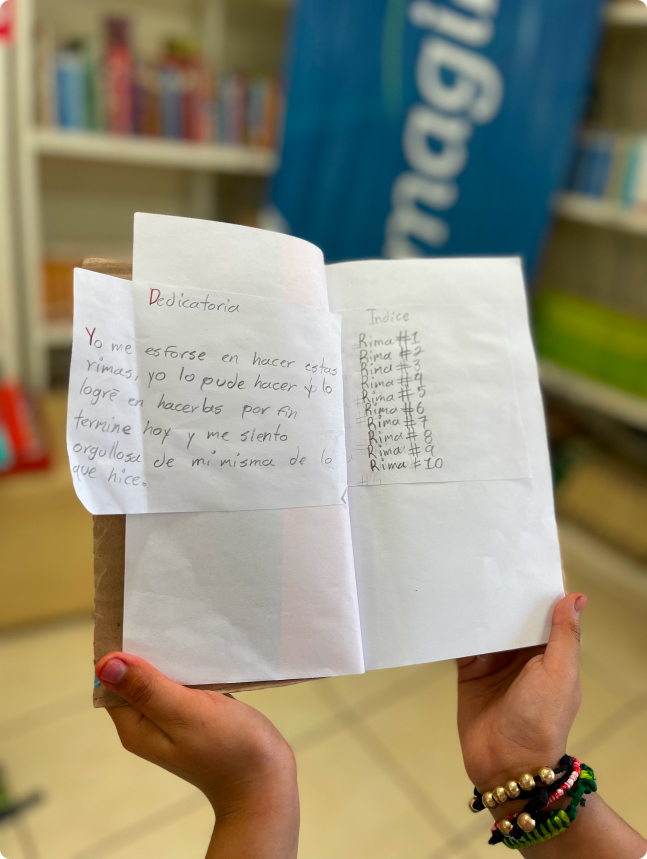 Dedicatoria
Yo me esforse en hacer estas
rimas, yo lo pude hacer y lo
logré en hacerlas por fin
termine hoy y me siento
orgullosa de mi misma de lo
que hice.
Indice
Rima #1
Rima #2
Rima #3
Rima #4
Rima #5
Rima #6
Rima #7
Rima #8
Rima #9
Rima #10
magin